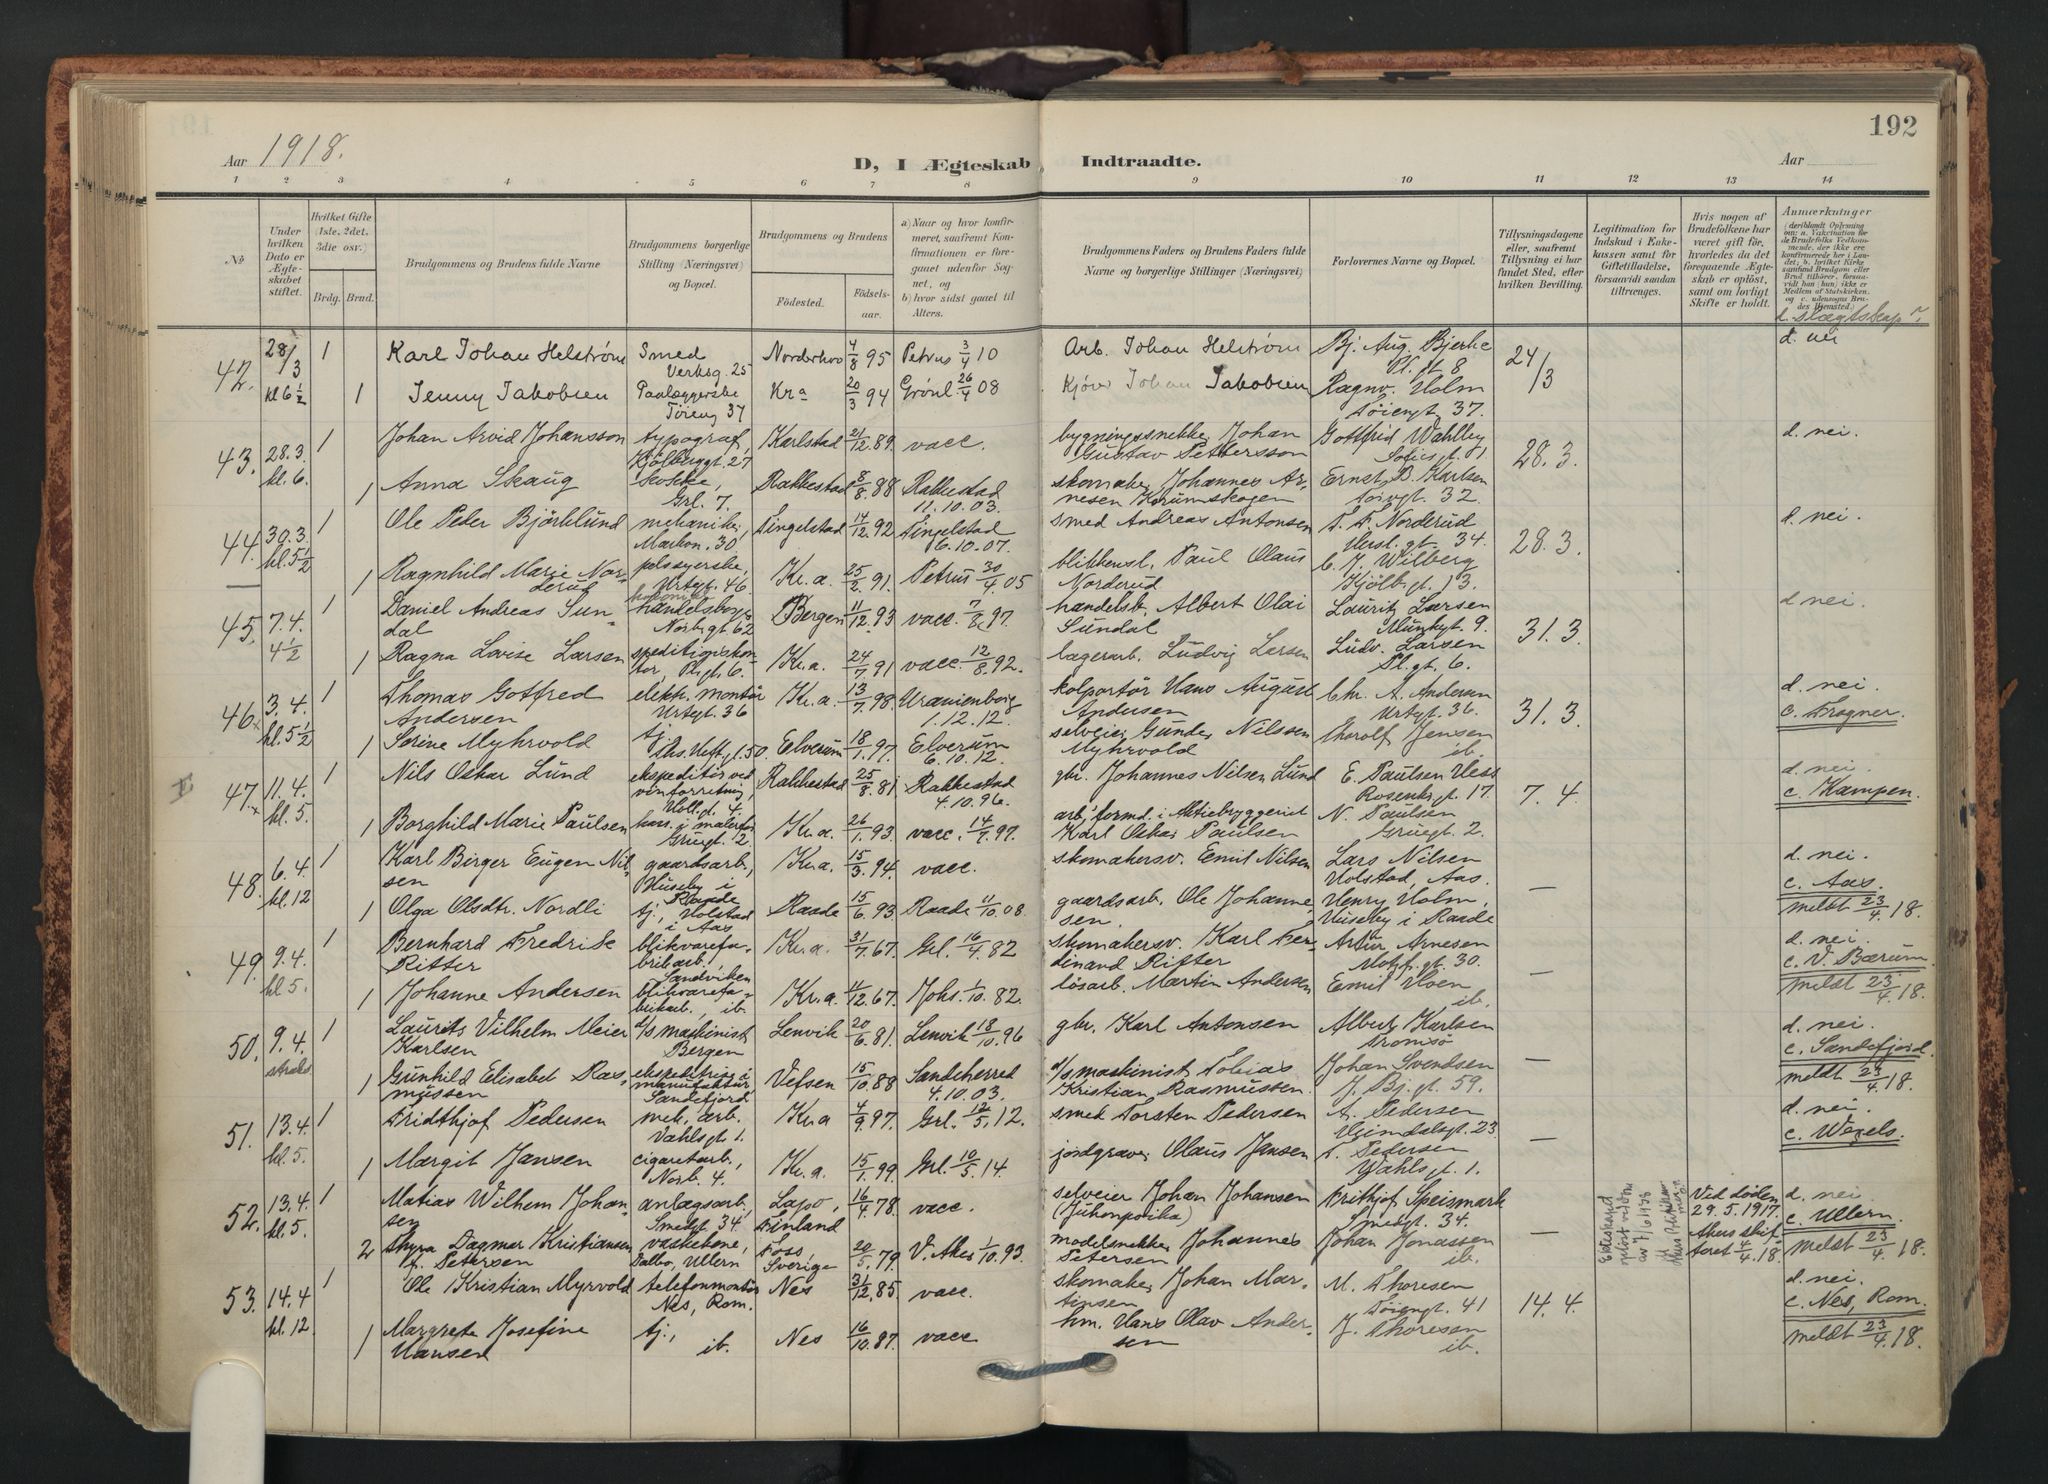 192
Aar 1918.
D, I Ægteskab Indtraadte.
Aar
1 2 3 4 5 6 7 8 9 10 11 12 13 14
No
Under hvilken Dato er Ægteskabet stiftet.
Hvilket Gifte (1ste, 2det, 3die osv.)
Brdg. Brud.
Brudgommens og Brudens fulde Navne
Brudgommens borgerlige Stilling (Næringsvei) og Bopæl.
Brudgommens og Brudens
Fødested.
Fødselsaar.
a) Naar og hvor konfirmeret, saafremt Konfirmationen er foregaaet udenfor Sognet, og
b) hvor sidst gaaet til Alters.
Brudgommens Faders og Brudens Faders fulde Navne og borgerlige Stillinger (Næringsvei)
Forlovernes Navne og Bopæl.
Tillysningsdagene eller, saafremt Tillysning ei har fundet Sted, efter hvilken Bevilling.
Legitimation for Indskud i Enkekassen samt for Giftetilladelse, forsaavidt saadan tiltrænges.
Hvis nogen af Brudefolkene har været gift før, hvorledes da det foregaaende Ægteskab er opløst, samt om lovligt Skifte er holdt.
Anmærkninger
d. slægtskap?
42. 28/3 kl 6½ 1 Karl Johan Helstrøm Smed Verksg. 25 Norderhov 4/8 95 Petrus 3/4 10 Arb. Johan Helstrøm Bj. Aug. Bjerke Pl. gt 8 24/3 d. nei
1 Jenny Jakobsen Paalæggerske Tøieng 37 Kra 20/3 94 Grønl. 26/4 08 Kjører Johan Jakobsen Ragnv. Holm Tøiengt. 37.
43. 28.3. kl. 6. 1 Johan Arvid Johansson typograf, Kjølberggt. 27 Karlstad 21/12 89. vacc. bygningssnekker Johan Gustav Pettersson Gottfrid Wahlby Sofies gt. 1. 28.3. d. nei.
1 Anna Skaug Grl. 7. Rakkestad 8/8 88 Rakkestad 11.10.03. skomaker Johannes Arnesen Kerumskogen Ernst B. Karlsen 32.
44. 30.3. kl. 5½ 1 Ole Peder Björklund mekaniker, Markvn. 30 Tingelstad 14/12 92 Tingelstad 6.10.07. smed Andreas Antonsen T. F. Norderud Hersl. gt. 34. 28.3. d. nei.
1 Ragnhild Marie Norderud Urtegt. 46 Kr.a. 25/2 91. Petrus 30/4 05 blikkensl. Paul Olaus Norderud C. J. Wilberg Kjölb. gt. 13.
45. 7.4. 4½ 1 Daniel Andreas Sundal Norbygt 62 Bergen 11/12 93 vacc. 7/8 97. handelsb. Albert Olai Sundal Laurits Larsen Munkgt. 9. 31.3. d nei.
1 Ragna Lovise Larsen speditionskontor, Pl. gt. 6. Kr.a. 24/7 91 vacc. 12/8 92. lagerarb. Ludvig Larsen Ludv. Larsen Pl. gt. 6.
46. 3.4. kl. 5½ 1 Thomas Gotfred Andersen elektr. montör Urtegt. 36 Kr.a. 13/7 98. Uranienborg 1.12.12. kolportör Hans August Andersen Chr. A. Andersen Urtegt. 36. 31.3. d. nei. c. Frogner.
1 Sorine Myhrvold tj. 50. Elverum 18/1 97. Elverum 6.10.12. selveier Gunder Nilssen Myhrvold Thorolf Jensen ib.
47. 11.4. kl. 5. 1 Nils Oskar Lund ekspeditör ved vinforretning, Rakkestad 25/8 81 Rakkestad 4.10.96. gbr. Johannes Nilsen Lund E. Paulsen Hess Rosenks gt. 17. 7.4. d. nei. c. Kampen.
1 Borghild Marie Paulsen Grüegt. 2. Kr.a. 26/1 93. vacc. 14/7 97. arb. formd. i Aktiebryggeriet Karl Oskar Paulsen N. Paulsen Grüegt. 2.
48. 6.4. kl. 12 1 Karl Birger Eugen Nilsen gaardsarb., Huseby i Raade Kr.a. 15/3 94. vacc. skomakersv. Emil Nilsen Lars Nilsen Holstad, Aas. — d. nei. c. Aas.
1 Olga Olsdtr. Nordli tj., Holstad i Aas Raade 15/6 93 Raade 11/10 08. gaardsarb. Ole Johannesen. Henry Holm, Huseby i Raade meldt 23/4 18.
49. 9.4. kl. 5. 1 Bernhard Fredrik Ritter blikvarefabrikarb. Sandviken Kr.a. 31/7 67. Grl. 16/4 82 skomakersv. Karl Ferdinand Ritter Artur Arnesen Motzf. gt. 30. — d. nei. c. V. Bærum.
1 Johanne Andersen blikvarefabrikarb., ib. Kr.a. 11/12 67. Johs. 1/10 82. lösarb. Martin Andersen Emil Hoen ib. meldt 23/4 18.
50. 9.4. straks 1 Laurits Vilhelm Meier Karlsen d/s maskinist Bergen Lenvik 20/6 81. Lenvik 18/10 96 gbr. Karl Antonsen Albert Karlsen Tromsö — d. nei. c. Sandefjord.
1 Gunhild Elisabet Rasmussen ekspeditrise i manufaktur Sandefjord Vefsen 15/10 88 Sandeherred 4.10.03. d/s maskinist Tobias Kristian Rasmussen Johan Svendsen J. Bj. gt. 59. meldt 23/4 18.
51. 13.4. kl. 5. 1 Fridthjof Pedersen mek. arb. Vahls gt. 1. Kr.a 4/9 97. Grl. 12/5 12. smed Torsten Pedersen A. Pedersen Heimdalsgt. 23. — d. nei. c. Wexels.
1 Margit Jansen cigaretarb., Norb. 4. Kr.a. 15/1 99. Grl. 10/5 14. jordgraver Olaus Jansen T. Pedersen Vahls gt. 1.
52. 13.4. kl. 5. 1 Matias Wilhem Johansen anlægsarb., Smedgt. 34. Lapo, Finland 16/4 78. vacc. selveier Johan Johansen Frithjof Speismark Smedgt. 34. Ved döden 29.5.1917. Akers skifteret 4/4 18. d. nei. c. Ullern.
2 Thyra Dagmar Kristiansen f. Petersen vaskekone, Ullern Foss, Sverige 20/5 79. V. Aker 1/10 93 modelsnekker Johannes Petersen Johan Jonassen ib. meldt 23/4 18.
53. 14.4 kl. 12 1 Ole Kristian Myrvold telefonmontör Nes, Rom. Nes 31/12 85. vacc. skomaker Johan Martinsen M. Thoresen Töiengt. 41 14.4. d. nei. c. Nes, Rom.
1 Margrete Josefine Hansen tj., ib. Nes 16/10 87. vacc hm. Hans Olav Andersen J. Thoresen ib. meldt 23/4 18.